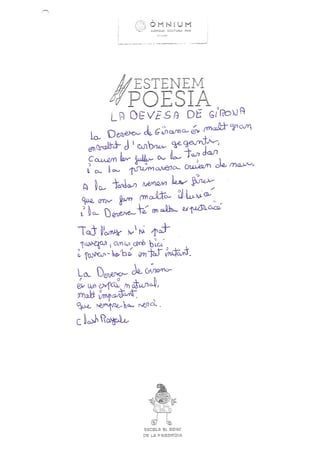 ÒMNIUM
ESTENEM
POESIA
LA DEVESA DE GIRONA
La Devesa de Girona és molt gran
envoltat d'arbres gegants,
Cauen les fulles a la tardor
i a la primavera cauen de nou.
A la tardor venen les fires
que ens fan molta il·lusió
i la Devesa té molta expectació
Tot l'any s'hi pot
passejar, anar amb bici
i passar-ho bé en tot instant.
La Devesa de Girona
és un espai natural,
molt important,
que sempre ha servit.
Clash Royale
ESCOLA EL BOSC
DE LA PABORDIA